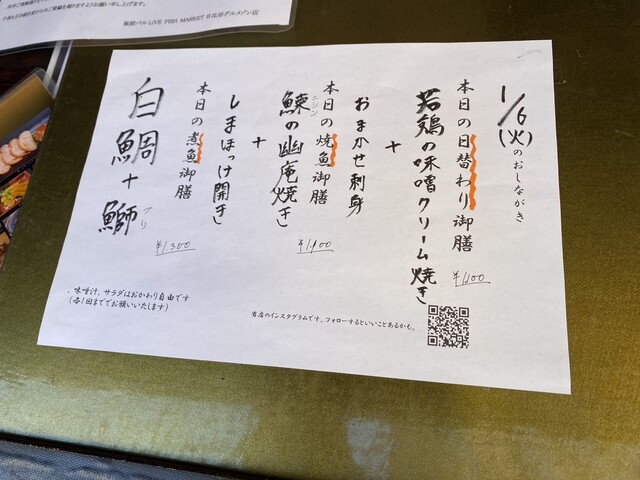 板前バル LIVE FISH MARKET 日比谷グルメゾン店
1/6(火)のおしながき
本日の日替わり御膳
若鶏の味噌クリーム焼き
+
おまかせ刺身
¥1,100
本日の焼魚御膳
鰊の幽庵焼き
ニシン
+
しまほっけ開き
¥1,400
本日の煮魚御膳
白鯛+鰤
ブリ
¥1,300
・味噌汁、サラダはおかわり自由です
(各1回まででお願いいたします)
当店のインスタグラムです。フォローするといいことあるかも。